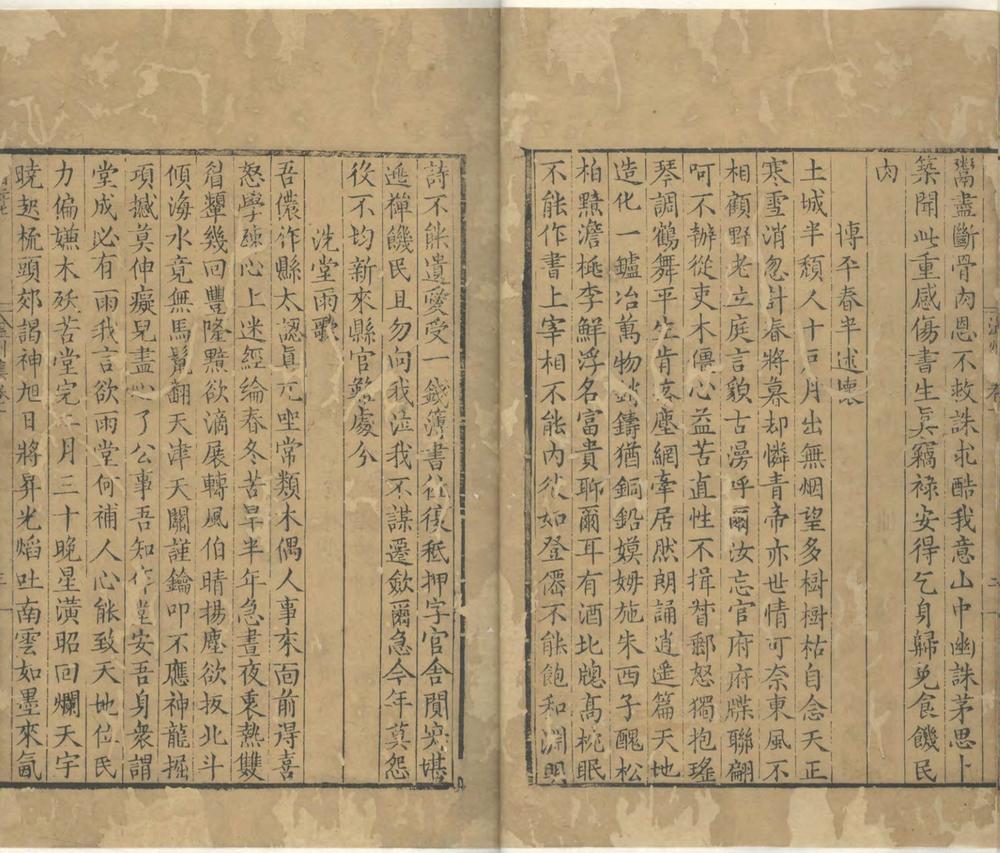 鬻盡斷骨肉恩不救誅求酷我意山中幽誅茅思卜
築聞此重感傷書生眞竊祿安得乞身歸免食饑民
肉
博平春半述懷
土城半頹人十戶月出無烟望多樹樹枯自念天正
寒雪消忽計春將暮却憐青帝亦世情可奈東風不
相顧野老立庭言貌古謾呼爾汝忘官府府牒聯翩
呵不辦從吏木偶心益苦直性不揖督郵怒獨抱瑤
琴調鶴舞平生肯落塵網牽居然朗誦逍遙篇天地
造化一鑪冶萬物銷鑄猶銅鉛嫫姆施朱西子醜松
柏黯澹桃李鮮浮名富貴聊爾耳有酒北牕高枕眠
不能作書上宰相不能內彼如登僊不能飽和淵明
詩不能遺愛受一錢簿書往復秪押字官舍閴寂堪
逃禪饑民且勿向我泣我不謀遷斂爾急今年莫怨
役不均新來縣官難處分
洗堂雨歌
吾儂作縣太認眞兀坐常類木偶人事來面前得喜
怒學穌心上迷經綸春冬苦旱半年急晝夜衷熱雙
眉顰幾回豐隆黯欲滴展轉風伯晴揚塵欲扳北斗
傾海水竟無馬鬣翻天津天關謹鑰叩不應神龍掘
項撼莫伸癡兒盡心了公事吾知作堂安吾身衆謂
堂成必有雨我言欲雨堂何補人心能致天地位民
力偏嫌木妖苦堂完二月三十晚星潢昭回爛天宇
曉起梳頭郊謁神旭日將昇光焰吐南雲如墨來氤